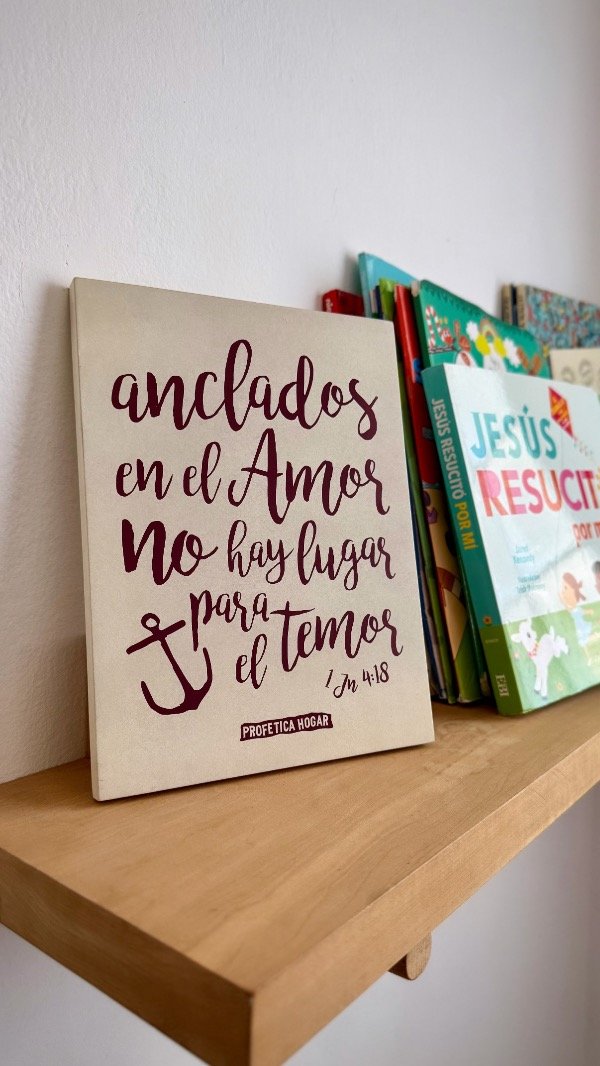 anclados
en el Amor
no hay lugar
para
el temor
1 Jn 4:18
PROFETICA HOGAR
JESÚS RESUCITÓ POR MÍ
EBI
JESÚS
RESUCIT
por m